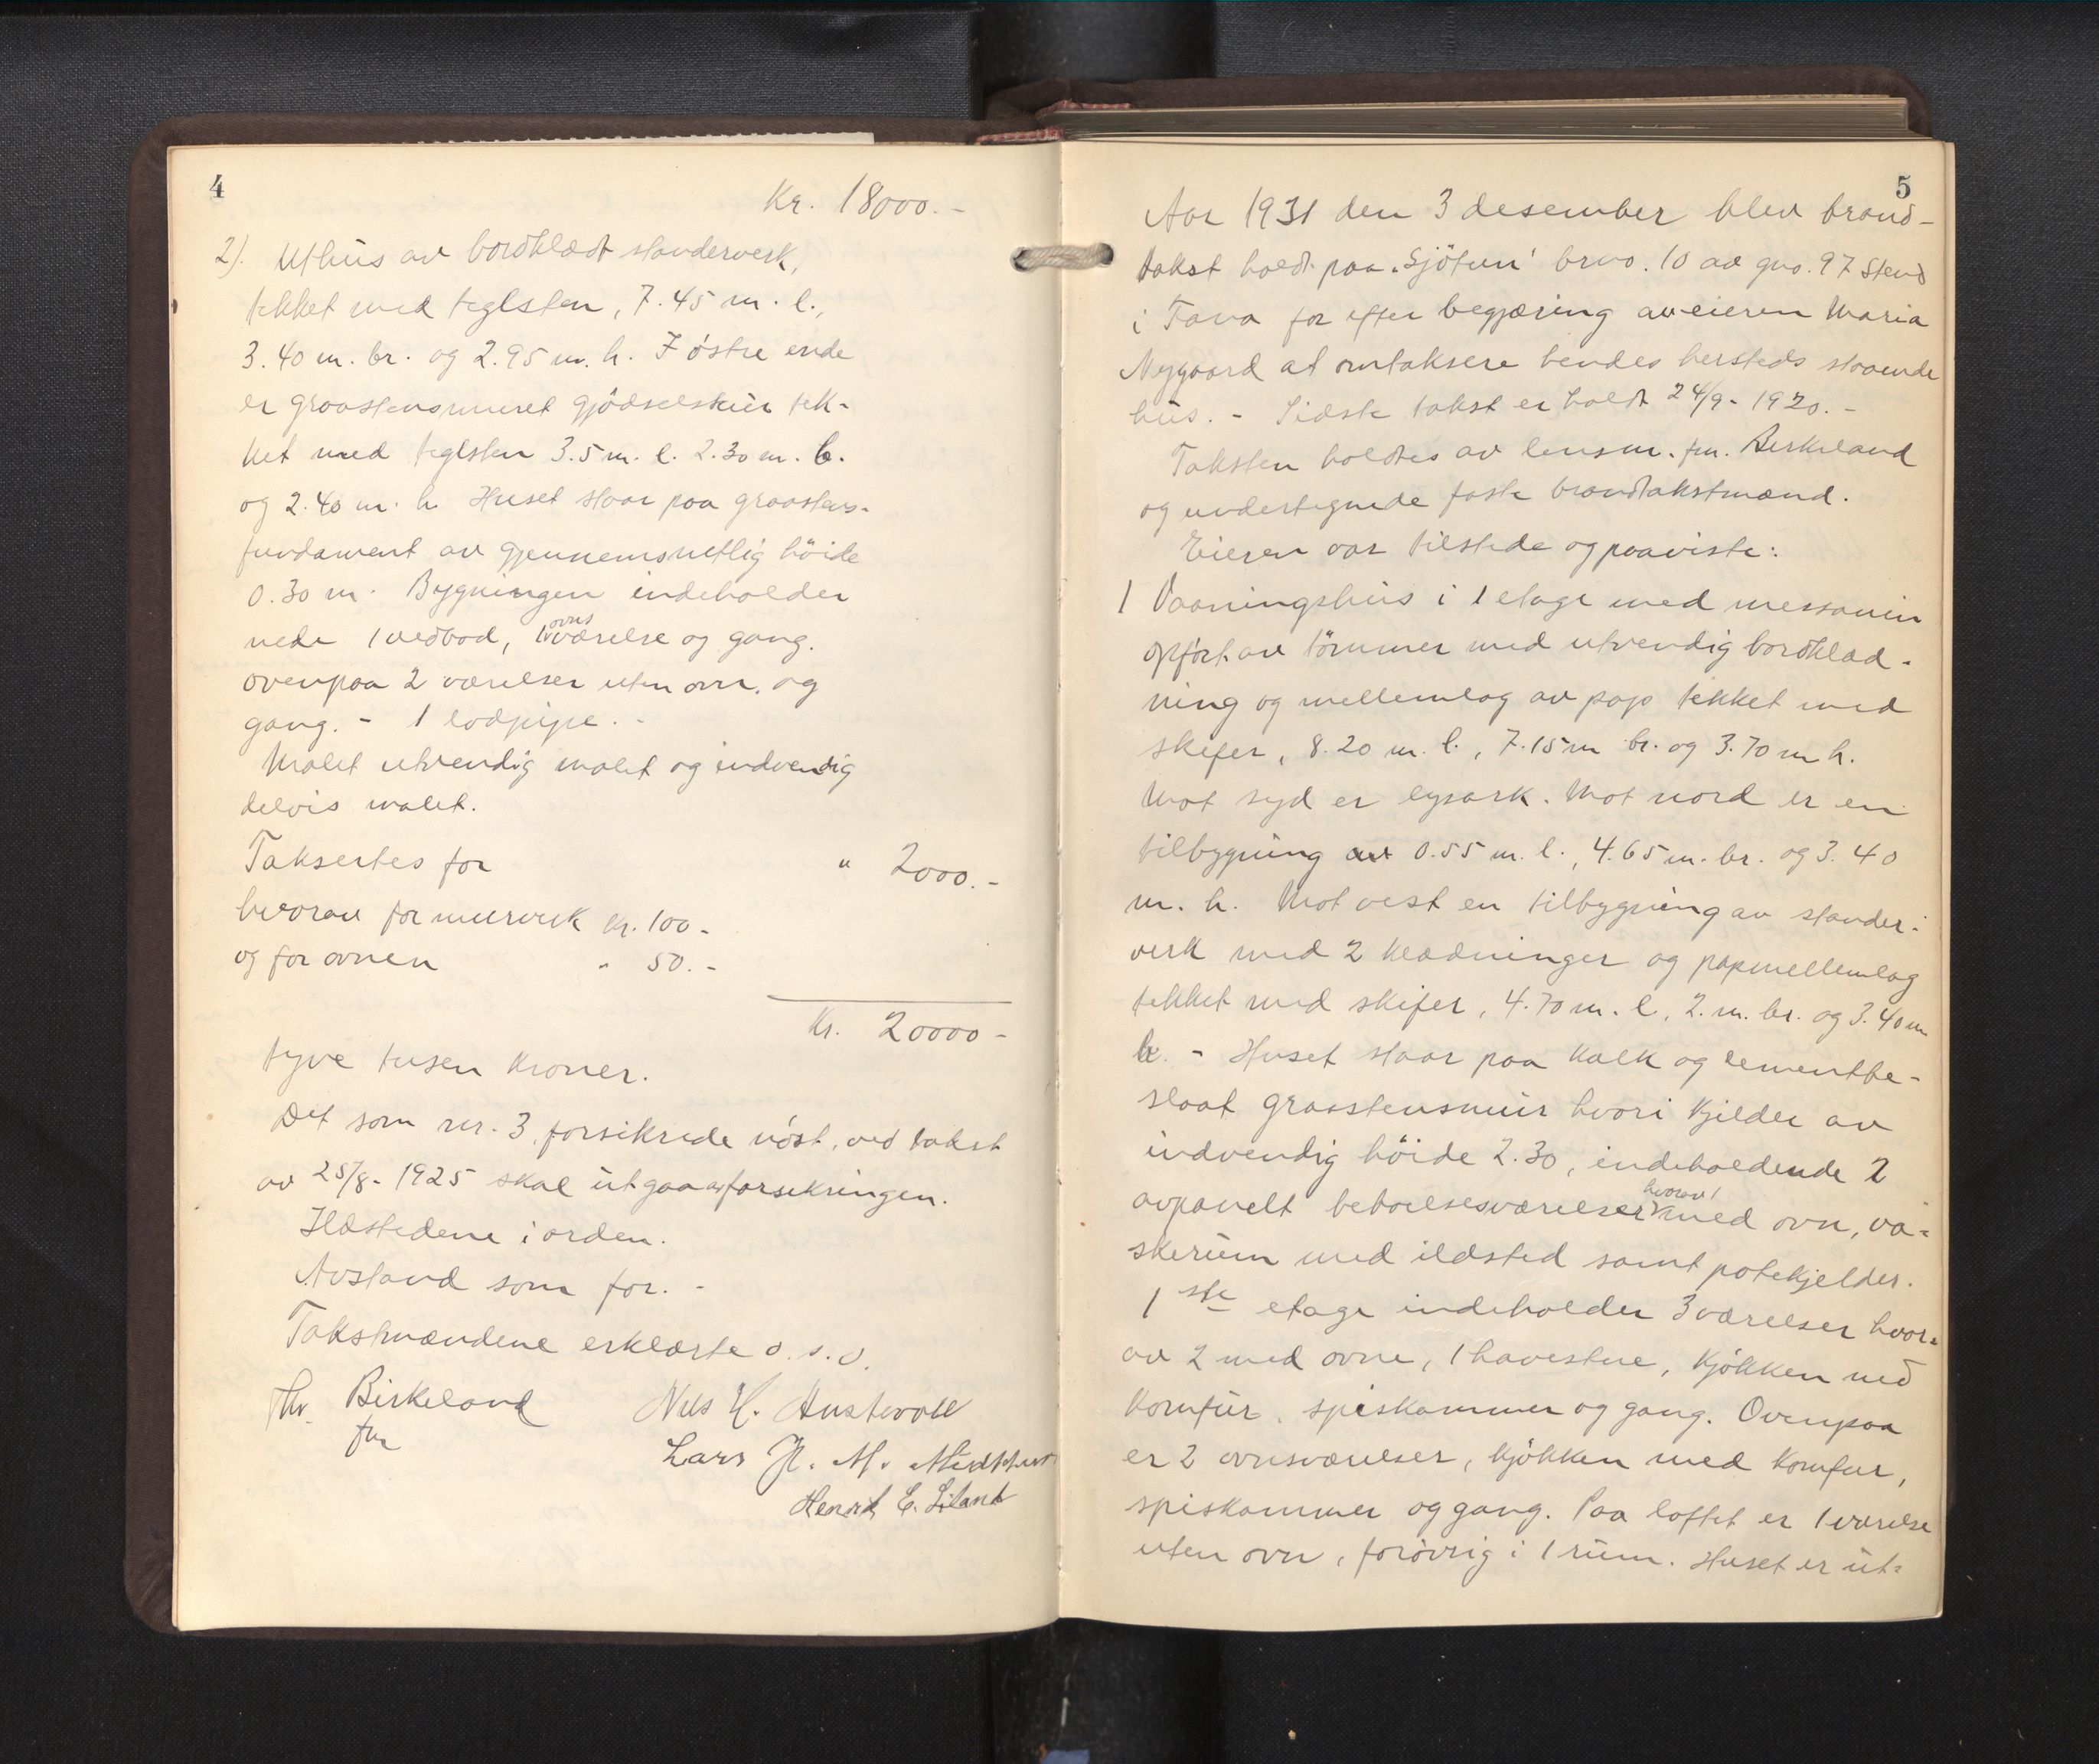 4
Kr. 18000.-
2). Uthus av bordklædt stenderverk,
tekket med teglsten, 7.45 m. l.,
3.40 m. br. og 2.95 m. h. I østre ende
er graastensmuret gjødselskur tek-
ket med teglsten 3.5 m. l. 2.30 m. b.
og 2.40 m. h. Huset staar paa graastens-
fundament av gjennemsnitlig höide
0.30 m. Bygningen indeholder
nede 1 vedbod, 1 ovnsværelse og gang.
ovenpaa 2 værelser uten ovn, og
gang. - 1 lodpipe. -
Malet utvendig malet og indvendig
delvis malet.
Taksertes for " 2000.-
hvorav for murverk kr. 100.-
og for ovnen " 50.-
Kr. 20000-
tyve tusen kroner.
Det som nr. 3 forsikrede nöst, ved takst
av 25/8-1925 skal utgaa av forsikringen.
Ildstedene i orden.
Avstand som før. -
Takstmændene erklærte o. s. v.
Thv. Birkeland
fm
Nils H. Austevoll
Lars H. M.
Henrik E. Liland
5
Aar 1931 den 3 desember blev brand-
takst holdt paa „Sjötun" brno. 10 av gno. 97 Stend
i Fana for efter begjæring av eieren Maria
Nygaard at omtaksere hendes hersteds staaende
hus. - Sidste takst er holdt 24/9-1920. -
Taksten holdtes av lensm. fm. Birkeland
og undertegnede faste brandtakstmænd.
Eieren var tilstede og paaviste:
1 Vaaningshus i 1 etage med messanin
opfört av tömmer med utvendig bordklæd-
ning og mellemlag av pap tekket med
skifer, 8.20 m. l., 7.15 m br. og 3.70 m h.
Mot syd er lysark. Mot nord er en
tilbygning av 0.55 m. l., 4.65 m. br. og 3.40
m. h. Mot vest en tilbygning av stender-
verk med 2 klædninger og papmellemlag
tekket med skifer, 4.70 m. l, 2. m. br. og 3.40 m
h. - Huset staar paa kalk og cementbe-
slaat graastensmur hvori kjelder av
indvendig höide 2.30, indeholdende 2
avpanelt beboelsesværelser hvorav 1 med ovn, va-
skerum med ildsted samt potetkjelder.
1ste etage indeholder 3 værelser hvor-
av 2 med ovne, 1 havestue, kjökken med
komfur, spiskammer og gang. Ovenpaa
er 2 ovnsværelser, kjökken med komfur,
spiskammer og gang. Paa loftet er 1 værelse
uten ovn, forövrig i 1 rum. Huset er ut-